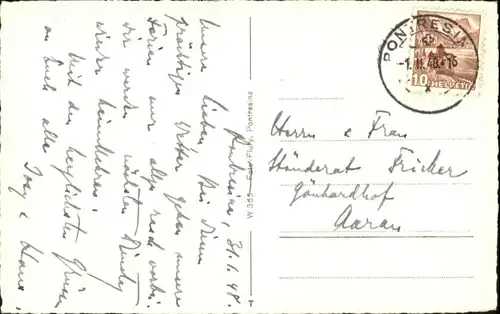 Pontresina, 31.1.48.
Meine Lieben! Bei diesem
prächtigen Wetter gehen unsere
Ferien nur allzu rasch vorbei.
Wir werden nächsten Dienstag
wieder heimkehren.
Mit den herzlichsten Grüssen
an Euch alle
& Hans.
W 365
Pontresina
PONTRESINA
-1.II.48.-16
10
HELVETIA
Herrn & Frau
Ständerat Fricker
Gönhardhof
Aarau